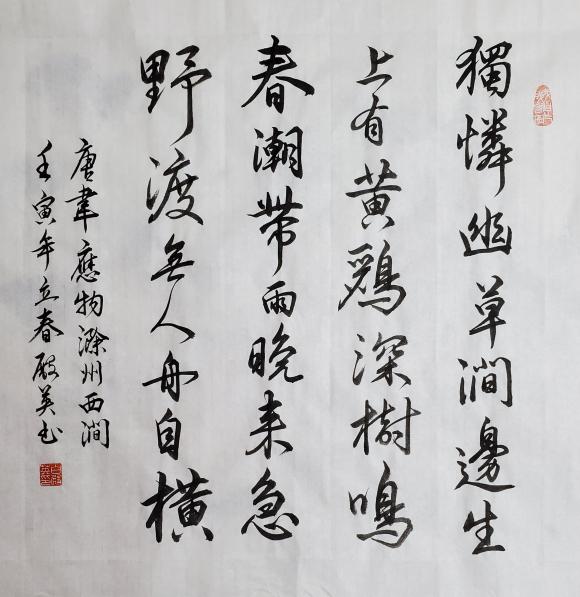 獨憐幽草澗邊生
上有黄鸝深樹鳴
春潮帶雨晚来急
野渡無人舟自橫
唐韋應物滁州西澗
壬寅年立春殿英书